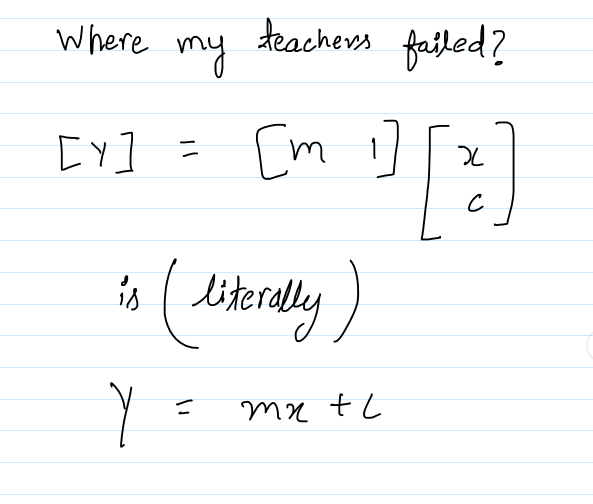 Where my teachers failed?
[Y] = [m 1] [x
c]
is (literally)
Y = mx + c